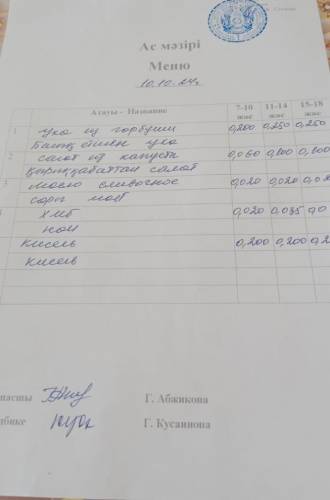 Ас мәзірі
Меню
10.10.24г.
Атауы - Название 7-10 жас 11-14 жас 15-18 жас
1 Уха из горбуши 0,200 0,250 0,250
уха
2 салат из капусты 0,060 0,100 0,100
Қырыққабаттан салат
3 Масло сливочное 0,020 0,020
сары май
Хлеб 0,020 0,035
нан
Кисель 0,200 0,200
Кисель
Г. Абжикова
Г. Кусаинова